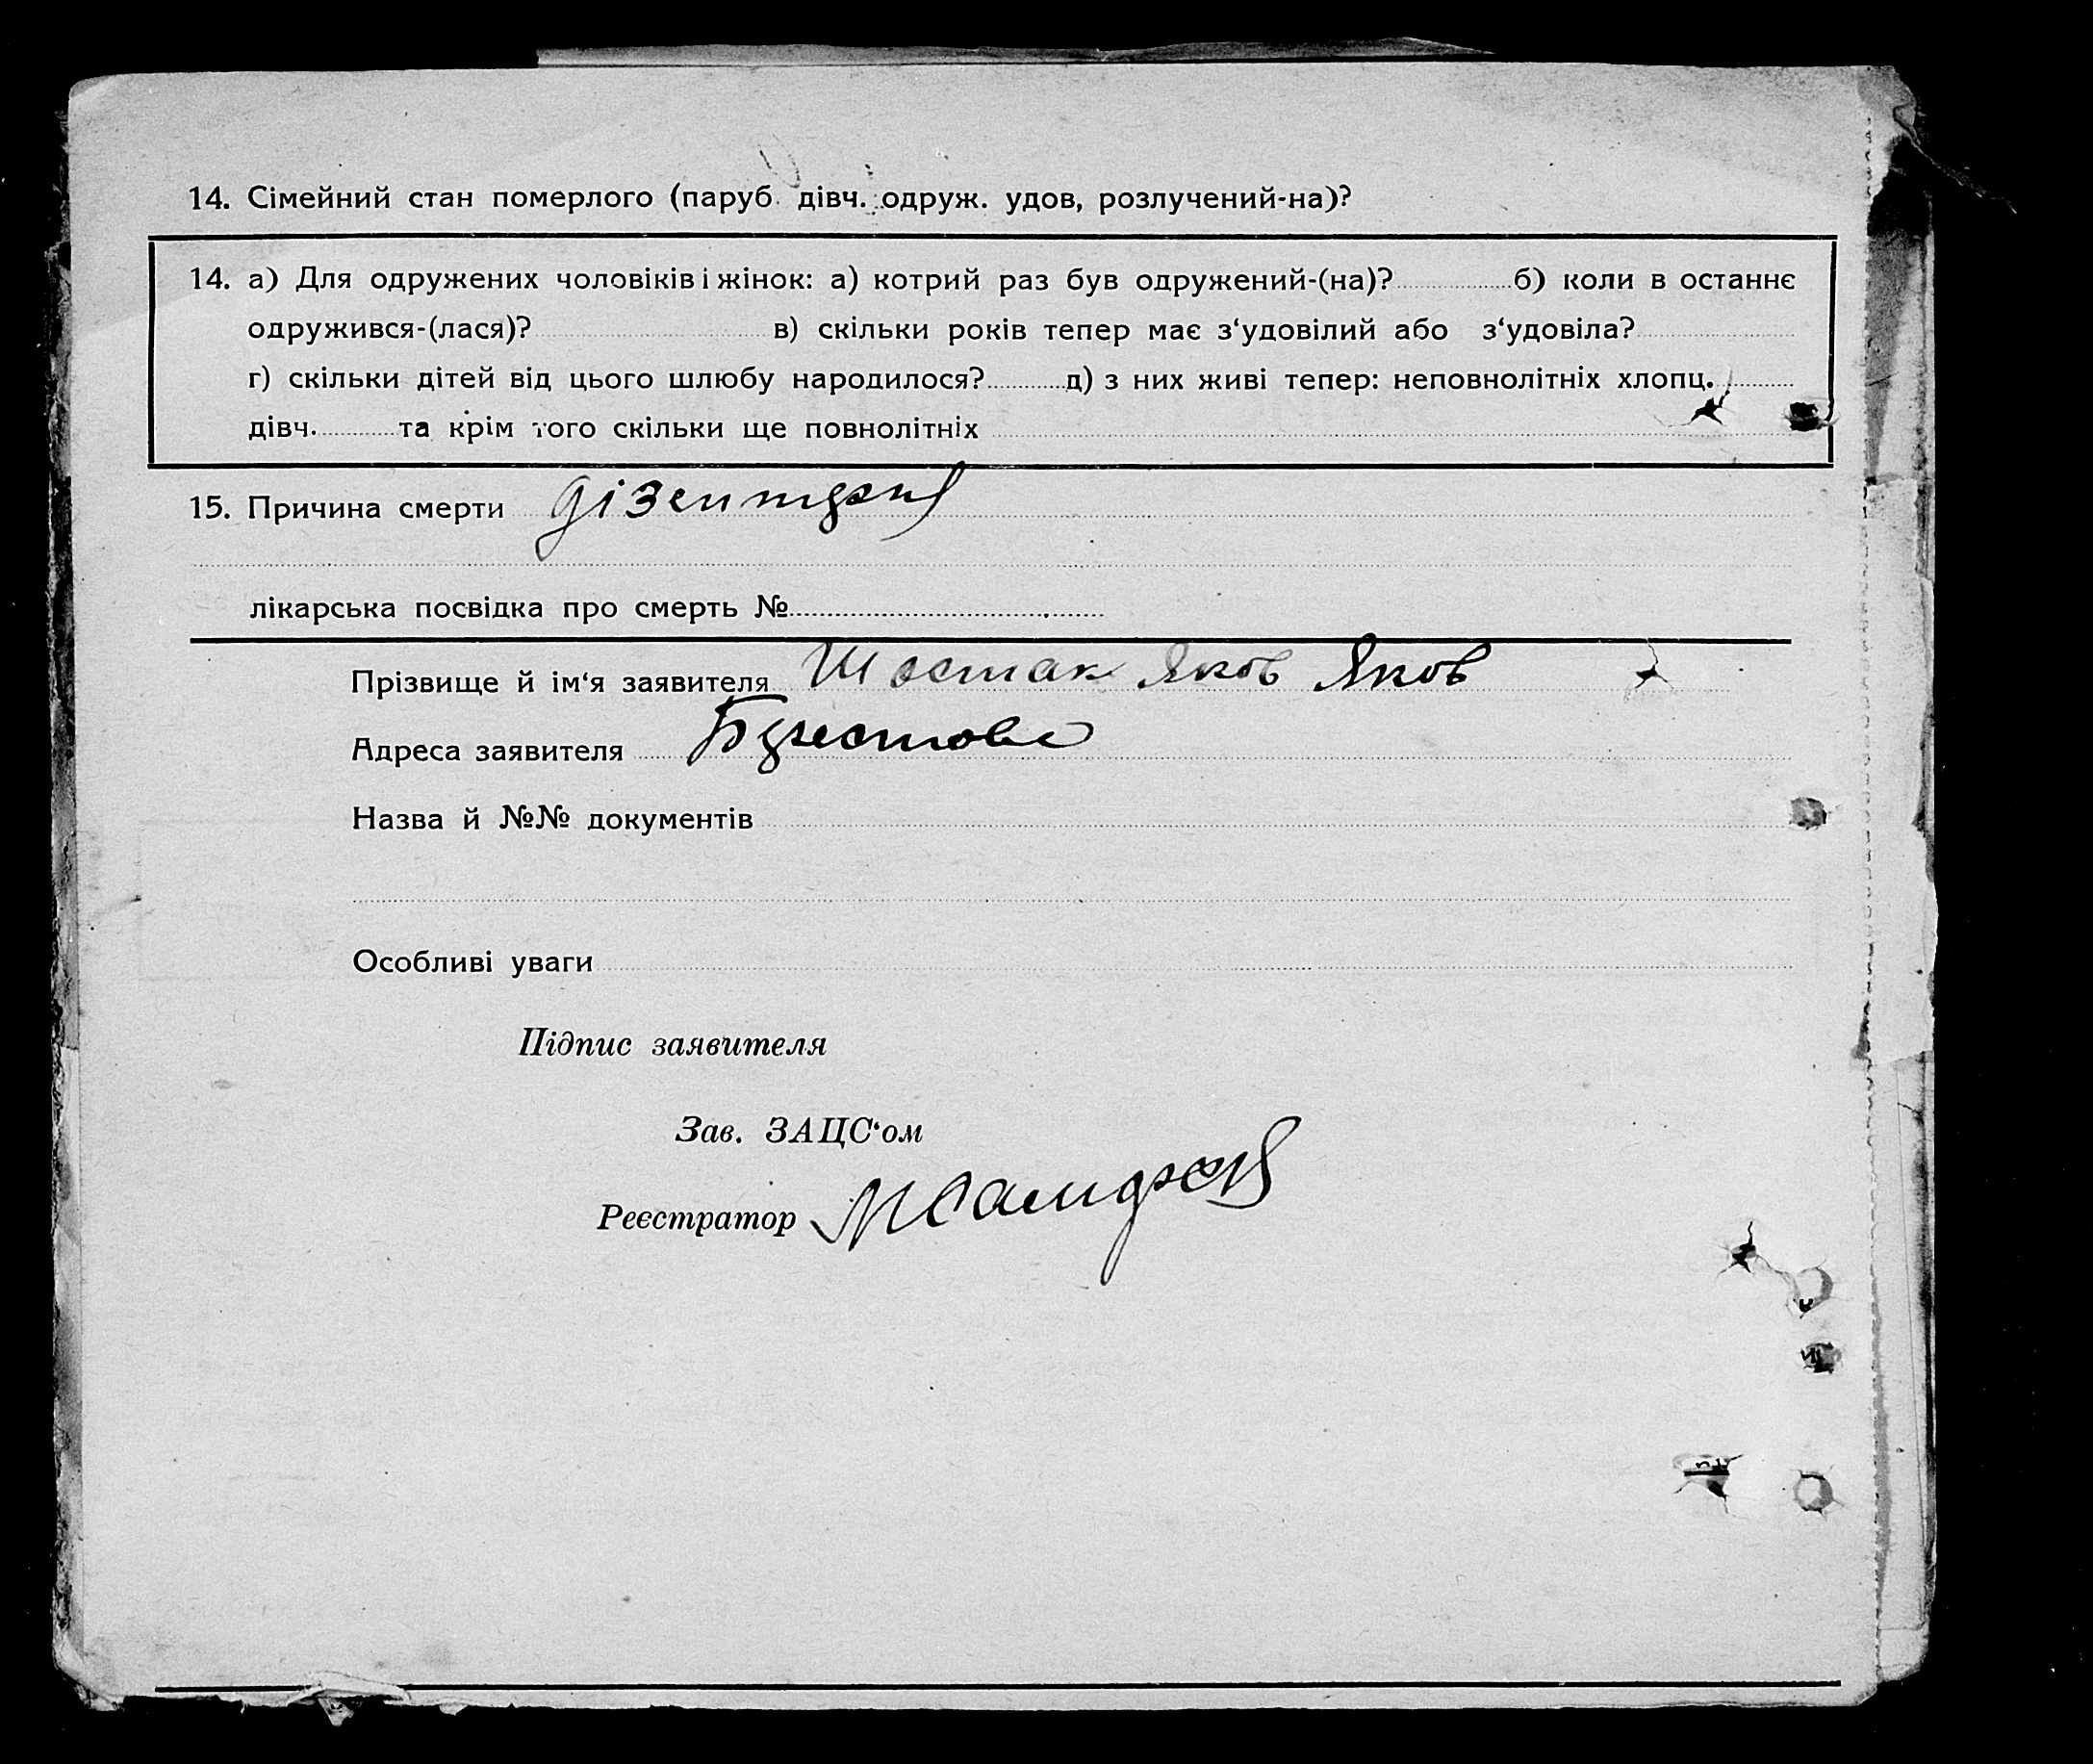 14. Сімейний стан померлого (паруб. дівч. одруж. удов, розлучений-на)?
14. а) Для одружених чоловіків і жінок: а) котрий раз був одружений-(на)? б) коли в останнє
одружився-(лася)? в) скільки років тепер має з‘удовілий або з‘удовіла?
г) скільки дітей від цього шлюбу народилося? д) з них живі тепер: неповнолітніх хлопц.
дівч. та крім того скільки ще повнолітніх
15. Причина смерти дізентерия
лікарська посвідка про смерть №
Прізвище й ім‘я заявителя Шостак Яков Яков
Адреса заявителя
Назва й №№ документів
Особливі уваги
Підпис заявителя
Зав. ЗАЦС‘ом
Реєстратор